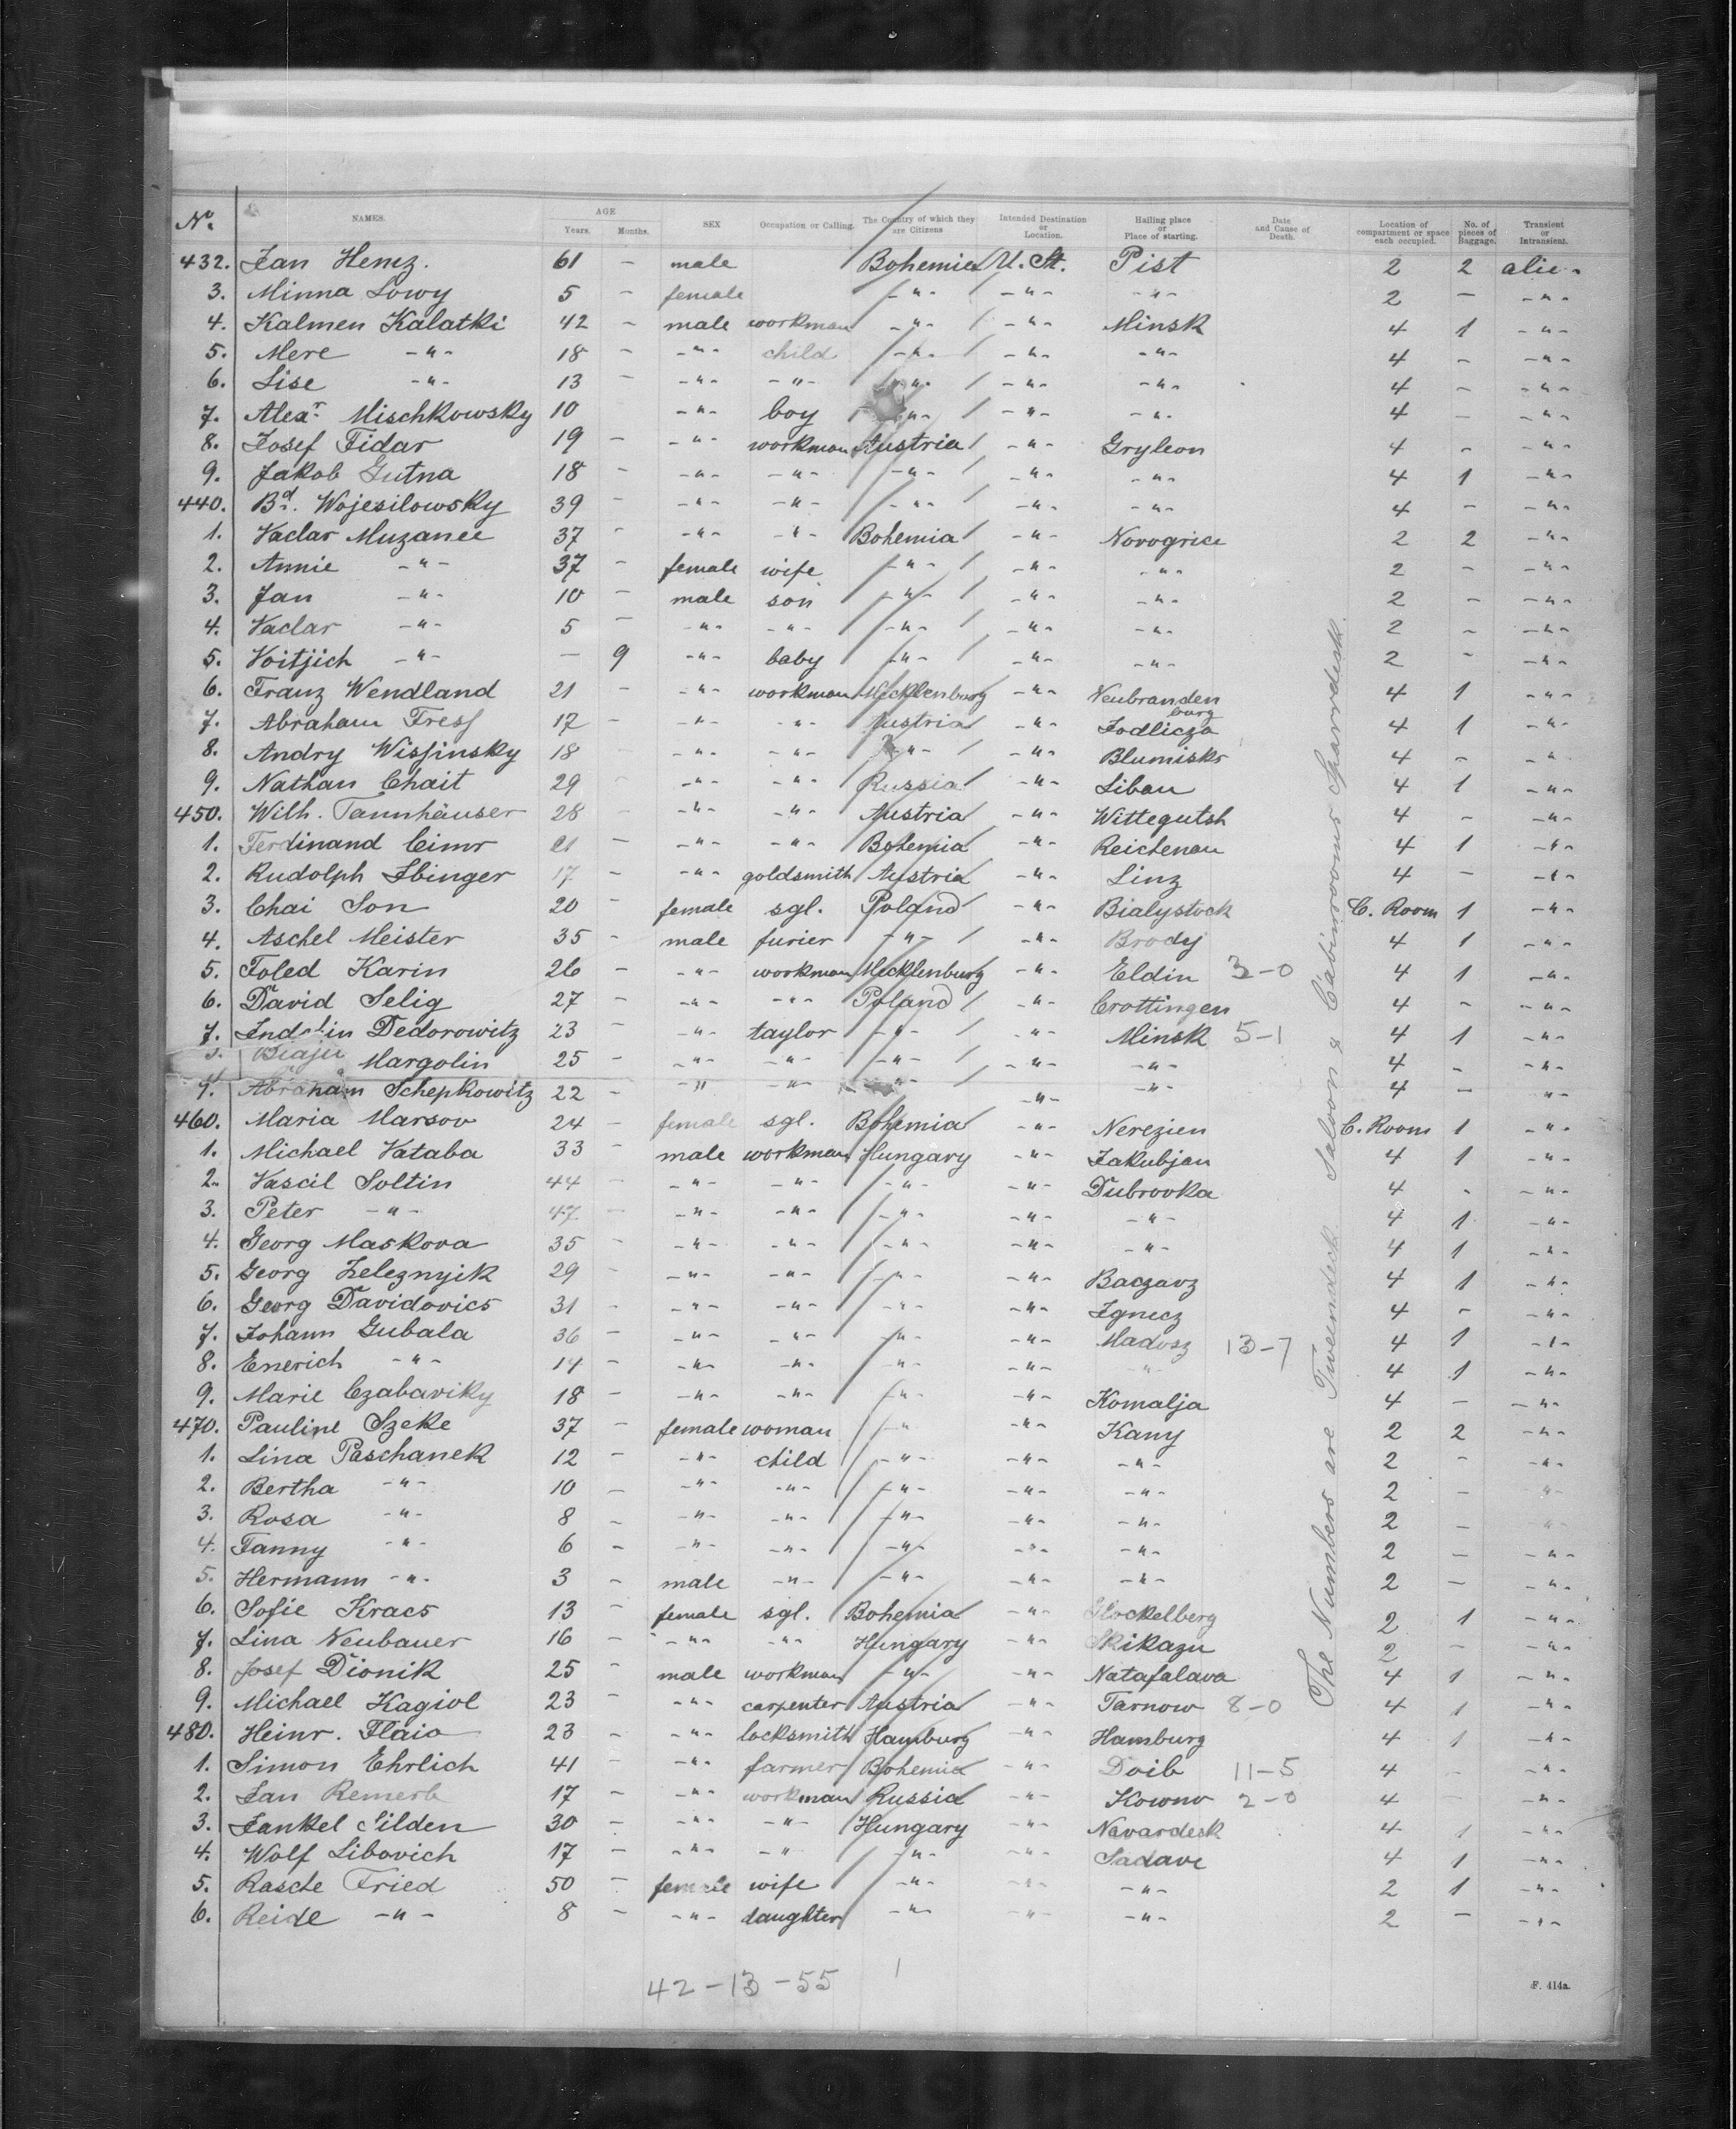 No. NAMES. AGE Years. Months. SEX Occupation or Calling. The Country of which they are Citizens Intended Destination or Location. Hailing place or Place of starting. Date and Cause of Death. Location of compartment or space each occupied. No. of pieces of Baggage. Transient or Intransient.
432. Jan Hemz. 61 - male Bohemia U. St. Pist 2 2 alie -
3. Minna Lowy 5 - female - " - - " - - " - 2 - - " -
4. Kalmen Kalatki 42 - male workman - " - - " - Minsk 4 1 - " -
5. Mere - " - 18 - - " - child - " - - " - - " - 4 - - " -
6. Lise - " - 13 - - " - - " - - " - - " - - " - 4 - - " -
7. Alexr. Mischkowsky 10 - " - boy - " - - " - - " - 4 - - " -
8. Josef Fidar 19 - - " - workman Austria - " - Gryleon 4 - - " -
9. Jakob Gutna 18 - - " - - " - - " - - " - - " - 4 1 - " -
440. Bd. Wojesilowsky 39 - - " - - " - - " - - " - - " - 4 - - " -
1. Vaclav Muzanee 37 - - " - - " - Bohemia - " - Novogrice 2 2 - " -
2. Annie - " - 37 - female wife - " - - " - 2 - - " -
3. Jan - " - 10 - male son - " - - " - - " - 2 - - " -
4. Vaclav - " - 5 - - " - - " - - " - - " - - " - 2 - - " -
5. Voitjich - " - - 9 - " - baby - " - - " - - " - 2 - - " -
6. Franz Wendland 21 - - " - workman Mecklenburg - " - Neubrandenburg 4 1 - " -
7. Abraham Fress 17 - - " - - " - Austria - " - Jodlicza 4 1 - " -
8. Andry Wissinsky 18 - " - - " - - " - Blumisko 4 - - " -
9. Nathan Chait 29 - - " - - " - Russia - " - Libau 4 1 - " -
450. Wilh. Tannhäuser 28 - - " - - " - Austria - " - Wittegutsh 4 - - " -
1. Ferdinand Cimr 21 - - " - - " - Bohemia - " - Reichenau 4 1 - " -
2. Rudolph Ibinger 17 - - " - goldsmith Austria - " - Linz 4 - - " -
3. Chai Son 20 - female sgl. Poland - " - Bialystock C. Room 1 - " -
4. Aschel Meister 35 - male furier - " - - " - Brody 4 1 - " -
5. Foled Karin 26 - - " - workman Mecklenburg - " - Eldin 3-0 4 1 - " -
6. David Selig 27 - - " - - " - Poland - " - Crottingen 4 - - " -
7. Dedorowitz 23 - - " - taylor - " - - " - Minsk 5-1 4 1 - " -
Margolin 25 - - " - - " - - " - - " - 4 - - " -
9. Abraham Schepkowitz 22 - - " - - " - - " - - " - - " - 4 - - " -
460. Maria Marsov 24 - female sgl. Bohemia - " - Nerezien C. Room 1 - " -
1. Michael Vataba 33 - male workman Hungary - " - Jakubjan 4 1 - " -
2. Vascil Soltin 44 - - " - - " - - " - - " - Dubrovka 4 - - " -
3. Peter - " - 47 - - " - - " - - " - - " - - " - 4 1 - " -
4. Georg Maskova 35 - - " - - " - - " - - " - - " - 4 1 - " -
5. Georg Zeleznyik 29 - - " - - " - - " - - " - Baczavz 4 1 - " -
6. Georg Davidovics 31 - - " - - " - - " - - " - Ignecz 4 - - " -
7. Johann Gubala 36 - - " - - " - - " - - " - Madosz 13-7 4 1 - " -
8. Enerich - " - 14 - - " - - " - - " - - " - - " - 4 1 - " -
9. Marie Czabaviky 18 - - " - - " - - " - - " - Komalja 4 - - " -
470. Pauline Szeke 37 - female woman - " - - " - Kany 2 2 - " -
1. Lina Paschanek 12 - - " - child - " - - " - - " - 2 - - " -
2. Bertha - " - 10 - - " - - " - - " - - " - - " - 2 - - " -
3. Rosa - " - 8 - - " - - " - - " - - " - - " - 2 - - " -
4. Fanny - " - 6 - - " - - " - - " - - " - - " - 2 - - " -
5. Hermann - " - 3 - male - " - - " - - " - - " - 2 - - " -
6. Sofie Kracs 13 - female sgl. Bohemia - " - Glockelberg 2 1 - " -
7. Lina Neubauer 16 - - " - - " - Hungary - " - Skikazu 2 - - " -
8. Josef Dionik 25 - male workman - " - - " - Natafalava 4 1 - " -
9. Michael Kagiol 23 - - " - carpenter Austria - " - Tarnow 8-0 4 1 - " -
480. Heinr. Flaio 23 - - " - locksmith Hamburg - " - Hamburg 4 1 - " -
1. Simon Ehrlich 41 - - " - farmer Bohemia - " - Doib 11-5 4 - - " -
2. Jan Remerb 17 - - " - workman Russia - " - Kowno 2-0 4 - - " -
3. Jankel Silden 30 - - " - - " - Hungary - " - Navardeck 4 1 - " -
4. Wolf Libovich 17 - - " - - " - " - - " - Sadave 4 1 - " -
5. Rasche Fried 50 - female wife - " - - " - - " - 2 1 - " -
6. Reide - " - 8 - - " - daughter - " - - " - - " - 2 - - " -
The Numbers are Tweendeck Saloon & Cabinrooms Sparrdeck.
42-13-55
F. 414a.